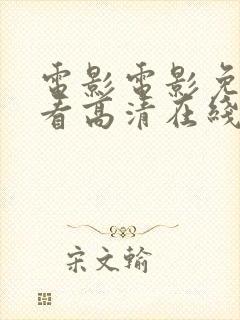 電影電影免
看高清在綫
宋文翰